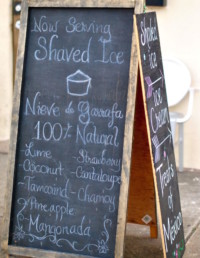 Now Serving
Shaved Ice
Nieve de Garrafa
100% Natural
-Lime -Strawberry
-Coconut -Cantaloupe
-Tamarind -Chamoy
-Pineapple
Mangonada
Shaved
Ice
Ice Cream
Treats of
Mexico